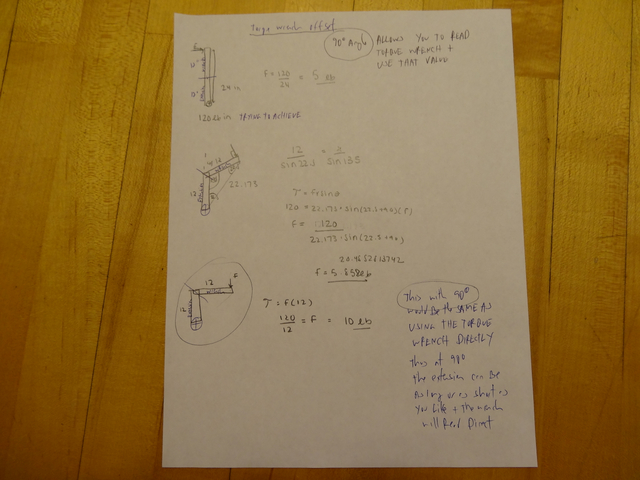 Torque wrench offset
90° Angle
ALLOWS YOU TO READ
TORQUE WRENCH +
USE THAT VALUE
F
F = 120 / 24 = 5 lb
24 in
120 lb in TRYING TO ACHIEVE
12 / sin 22.5 = x / sin 135
12
22.173
12
τ = f r sin θ
120 = 22.173 · sin(22.5+90)(F)
F = 120
22.173 · sin(22.5+90)
F = 5.858 lb
12
F
12
τ = F(12)
120 / 12 = F = 10 lb
This with 90°
would be the SAME AS
USING THE TORQUE
WRENCH DIRECTLY
thus at 90°
the extension can be
as long or as short as
You like + the wrench
will Read Direct